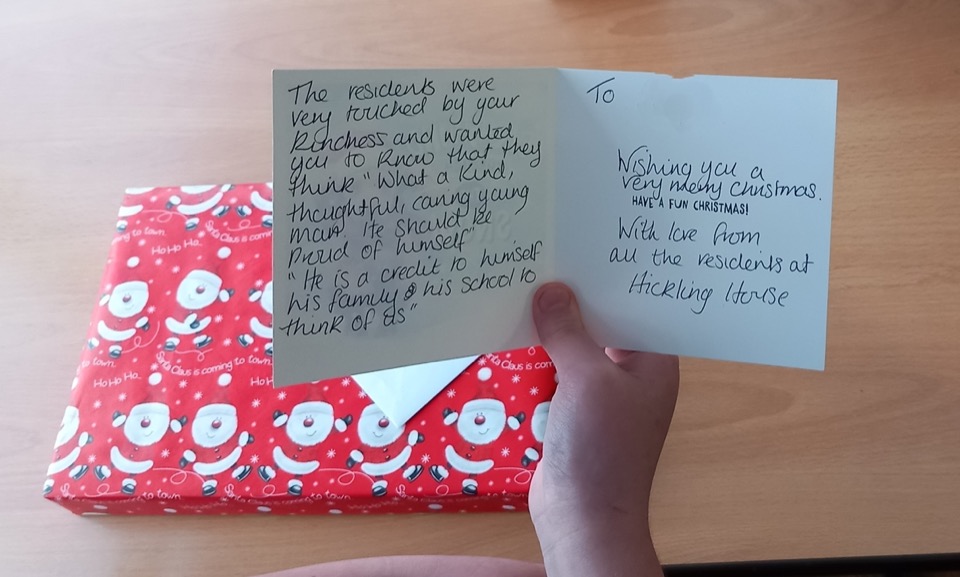 The residents were
very touched by your
Kindness and wanted
you to know that they
think "What a Kind,
thoughtful, caring young
man. He should be
proud of himself"
"He is a credit to himself
his family & his school to
think of us"
To
Wishing you a
very merry christmas.
HAVE A FUN CHRISTMAS!
With love from
all the residents at
Hickling House
Santa Claus is coming to town
Ho Ho Ho...